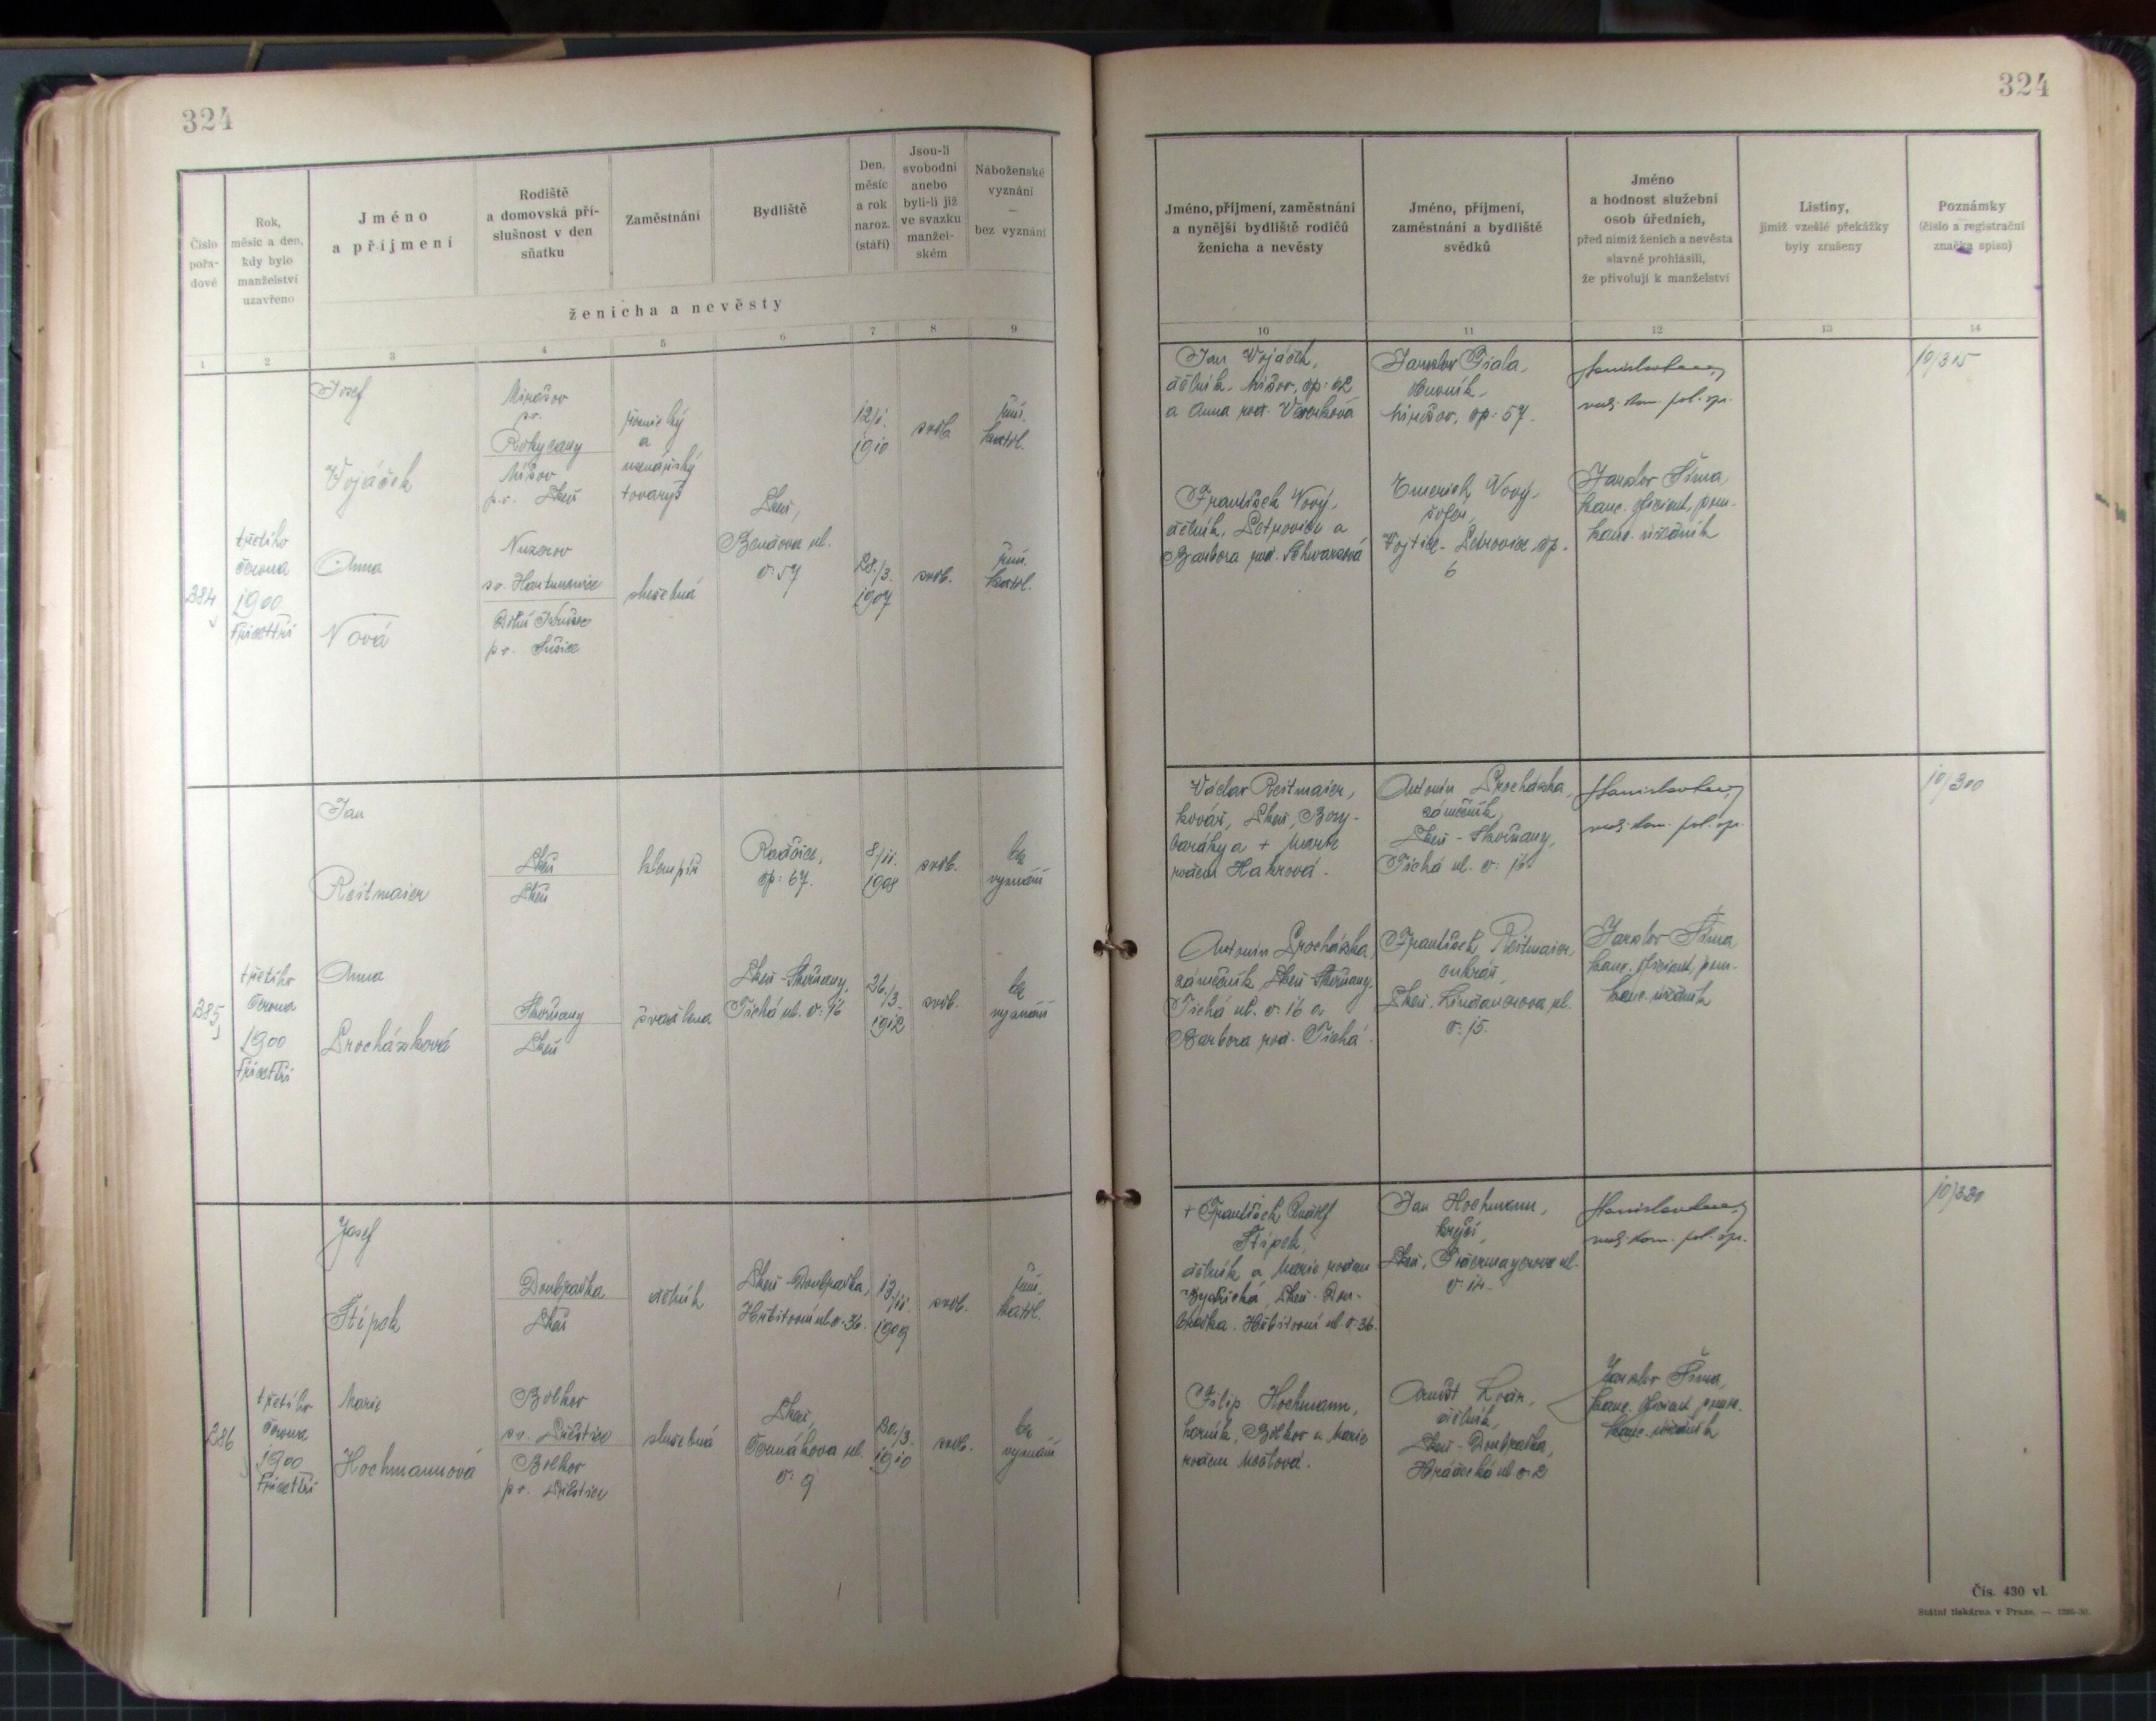 324
324
Číslo
pořa-
dové
Rok,
měsíc a den,
kdy bylo
manželství
uzavřeno
Jméno
a příjmení
Rodiště
a domovská pří-
slušnost v den
sňatku
Zaměstnání
Bydliště
Den,
měsíc
a rok
naroz.
(stáří)
Jsou-li
svobodni
anebo
byli-li již
ve svazku
manžel-
ském
Náboženské
vyznání
—
bez vyznání
ženicha a nevěsty
1 2 3 4 5 6 7 8 9
Jméno, příjmení, zaměstnání
a nynější bydliště rodičů
ženicha a nevěsty
Jméno, příjmení,
zaměstnání a bydliště
svědků
Jméno
a hodnost služební
osob úředních,
před nimiž ženich a nevěsta
slavně prohlásili,
že přivolují k manželství
Listiny,
jimiž vzešlé překážky
byly zrušeny
Poznámky
(číslo a registrační
značka spisu)
10 11 12 13 14
384
třetího
června
1900
třicettři
Josef
Vojáček
Mirošov
Rokycany
Míšov
p.o. Plzeň
řeznický
a
uzenářský
tovaryš
Plzeň,
Benešova ul.
č. 57
12/1.
1910
svob.
řím.
katol.
Anna
Nová
so. Hartmanice
p.o. Sušice
služebná
28./3.
1907
svob.
řím.
katol.
Jan Vojáček,
dělník, Míšov, čp: 62
a Anna roz.
Jaroslav Fiala,
Mirošov, čp: 57.
František Nový,
dělník, Petrovice a
Barbora roz. Schwarzová
Emerich Nový,
šofer,
Vojtice - Petrovice čp.
6
Jaroslav Šíma,
kanc. oficiant, pom.
kanc. úředník
10/315
385
třetího
června
1900
třicettři
Jan
Reitmaier
Plzeň
Plzeň
klempíř
Radčice,
čp: 67.
8/11.
1908
svob.
bez
vyznání
Anna
Procházková
Skvrňany
Plzeň
švadlena
Plzeň-Skvrňany,
Tichá ul. č: 16
26./3.
1912
svob.
bez
vyznání
Václav Reitmaier,
kovář, Plzeň, Bory-
baráky a + Marie
rozená Hahrová.
Antonín Procházka,
zámečník,
Plzeň - Skvrňany,
Tichá ul. č: 16
Antonín Procházka,
zámečník, Plzeň-Skvrňany,
Tichá ul. č. 16 a
Barbora roz. Tichá.
František Reitmaier,
cukrář,
Plzeň, Lindauerova ul.
č: 15.
Jaroslav Šíma,
kanc. oficiant, pom.
kanc. úředník
10/300
386
třetího
června
1900
třicettři
Josef
Štípek
Doubravka
Plzeň
dělník
Plzeň-Doubravka,
Hřbitovní ul. č. 36.
13./11.
1909
svob.
řím.
katol.
Marie
Hochmannová
Bolkov
so. Přeštice
Bolkov
p.o. Přeštice
služebná
Plzeň,
Čermákova ul.
č: 9
30./3.
1910
svob.
bez
vyznání
+ František Rudolf
Štípek,
dělník a Marie rozená
Plzeň-Dou-
bravka, Hřbitovní ul. č. 36.
Jan Hochmann,
krejčí,
Plzeň,
Filip Hochmann,
horník, Bolkov a Marie
rozená Moulová.
dělník,
Plzeň-Doubravka,
Hrádecká ul. č. 2
Jaroslav Šíma,
kanc. oficiant, pom.
kanc. úředník
10/320
Čís. 430 vl.
Státní tiskárna v Praze.